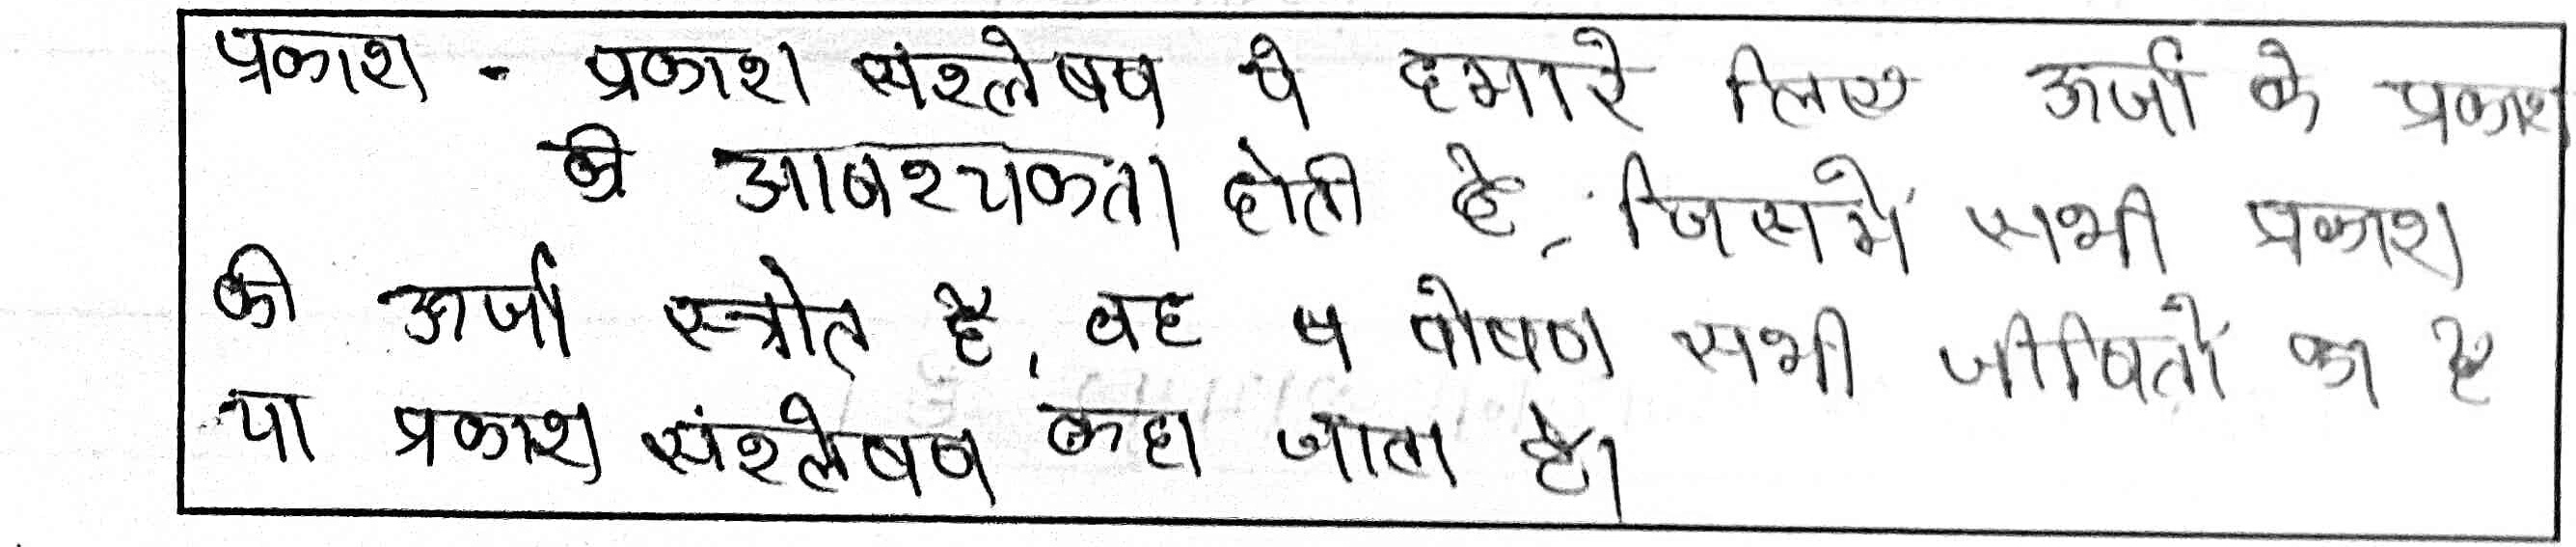 प्रकाश - प्रकाश संश्लेषण ये हमारे लिए ऊर्जा के प्रकाश
की आवश्यकता होती है, जिसमें सभी प्रकाश
की ऊर्जा स्त्रोत है, वह व पोषण सभी जीवितों का है
या प्रकाश संश्लेषण कहा जाता है।